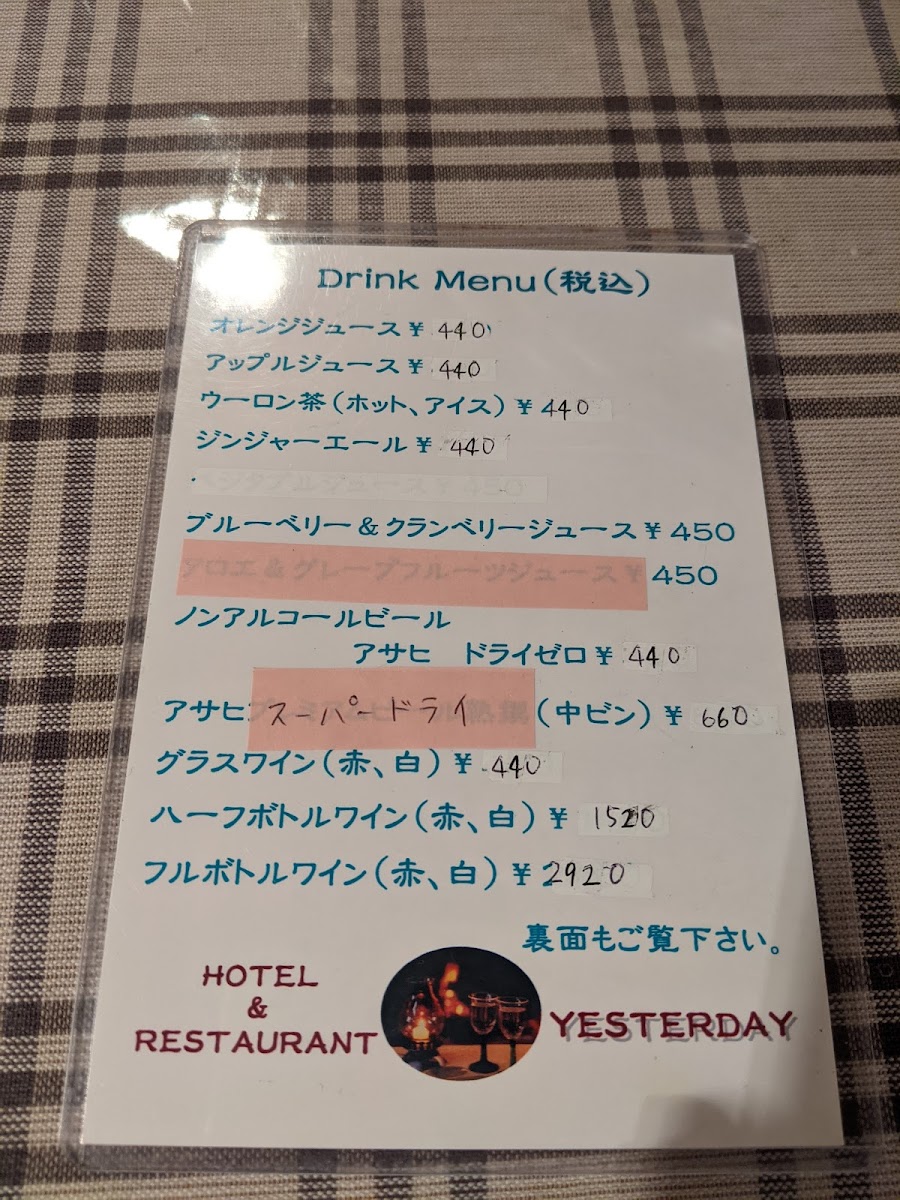 Drink Menu(税込)
オレンジジュース ¥ 440
アップルジュース ¥ 440
ウーロン茶(ホット、アイス) ¥ 440
ジンジャーエール ¥ 440
ベジタブルジュース ¥ 450
ブルーベリー&クランベリージュース ¥ 450
アロエ&グレープフルーツジュース ¥ 450
ノンアルコールビール
アサヒ ドライゼロ ¥ 440
アサヒ スーパードライ (中ビン) ¥ 660
グラスワイン(赤、白) ¥ 440
ハーフボトルワイン(赤、白) ¥ 1520
フルボトルワイン(赤、白) ¥ 2920
裏面もご覧下さい。
HOTEL
&
RESTAURANT
YESTERDAY